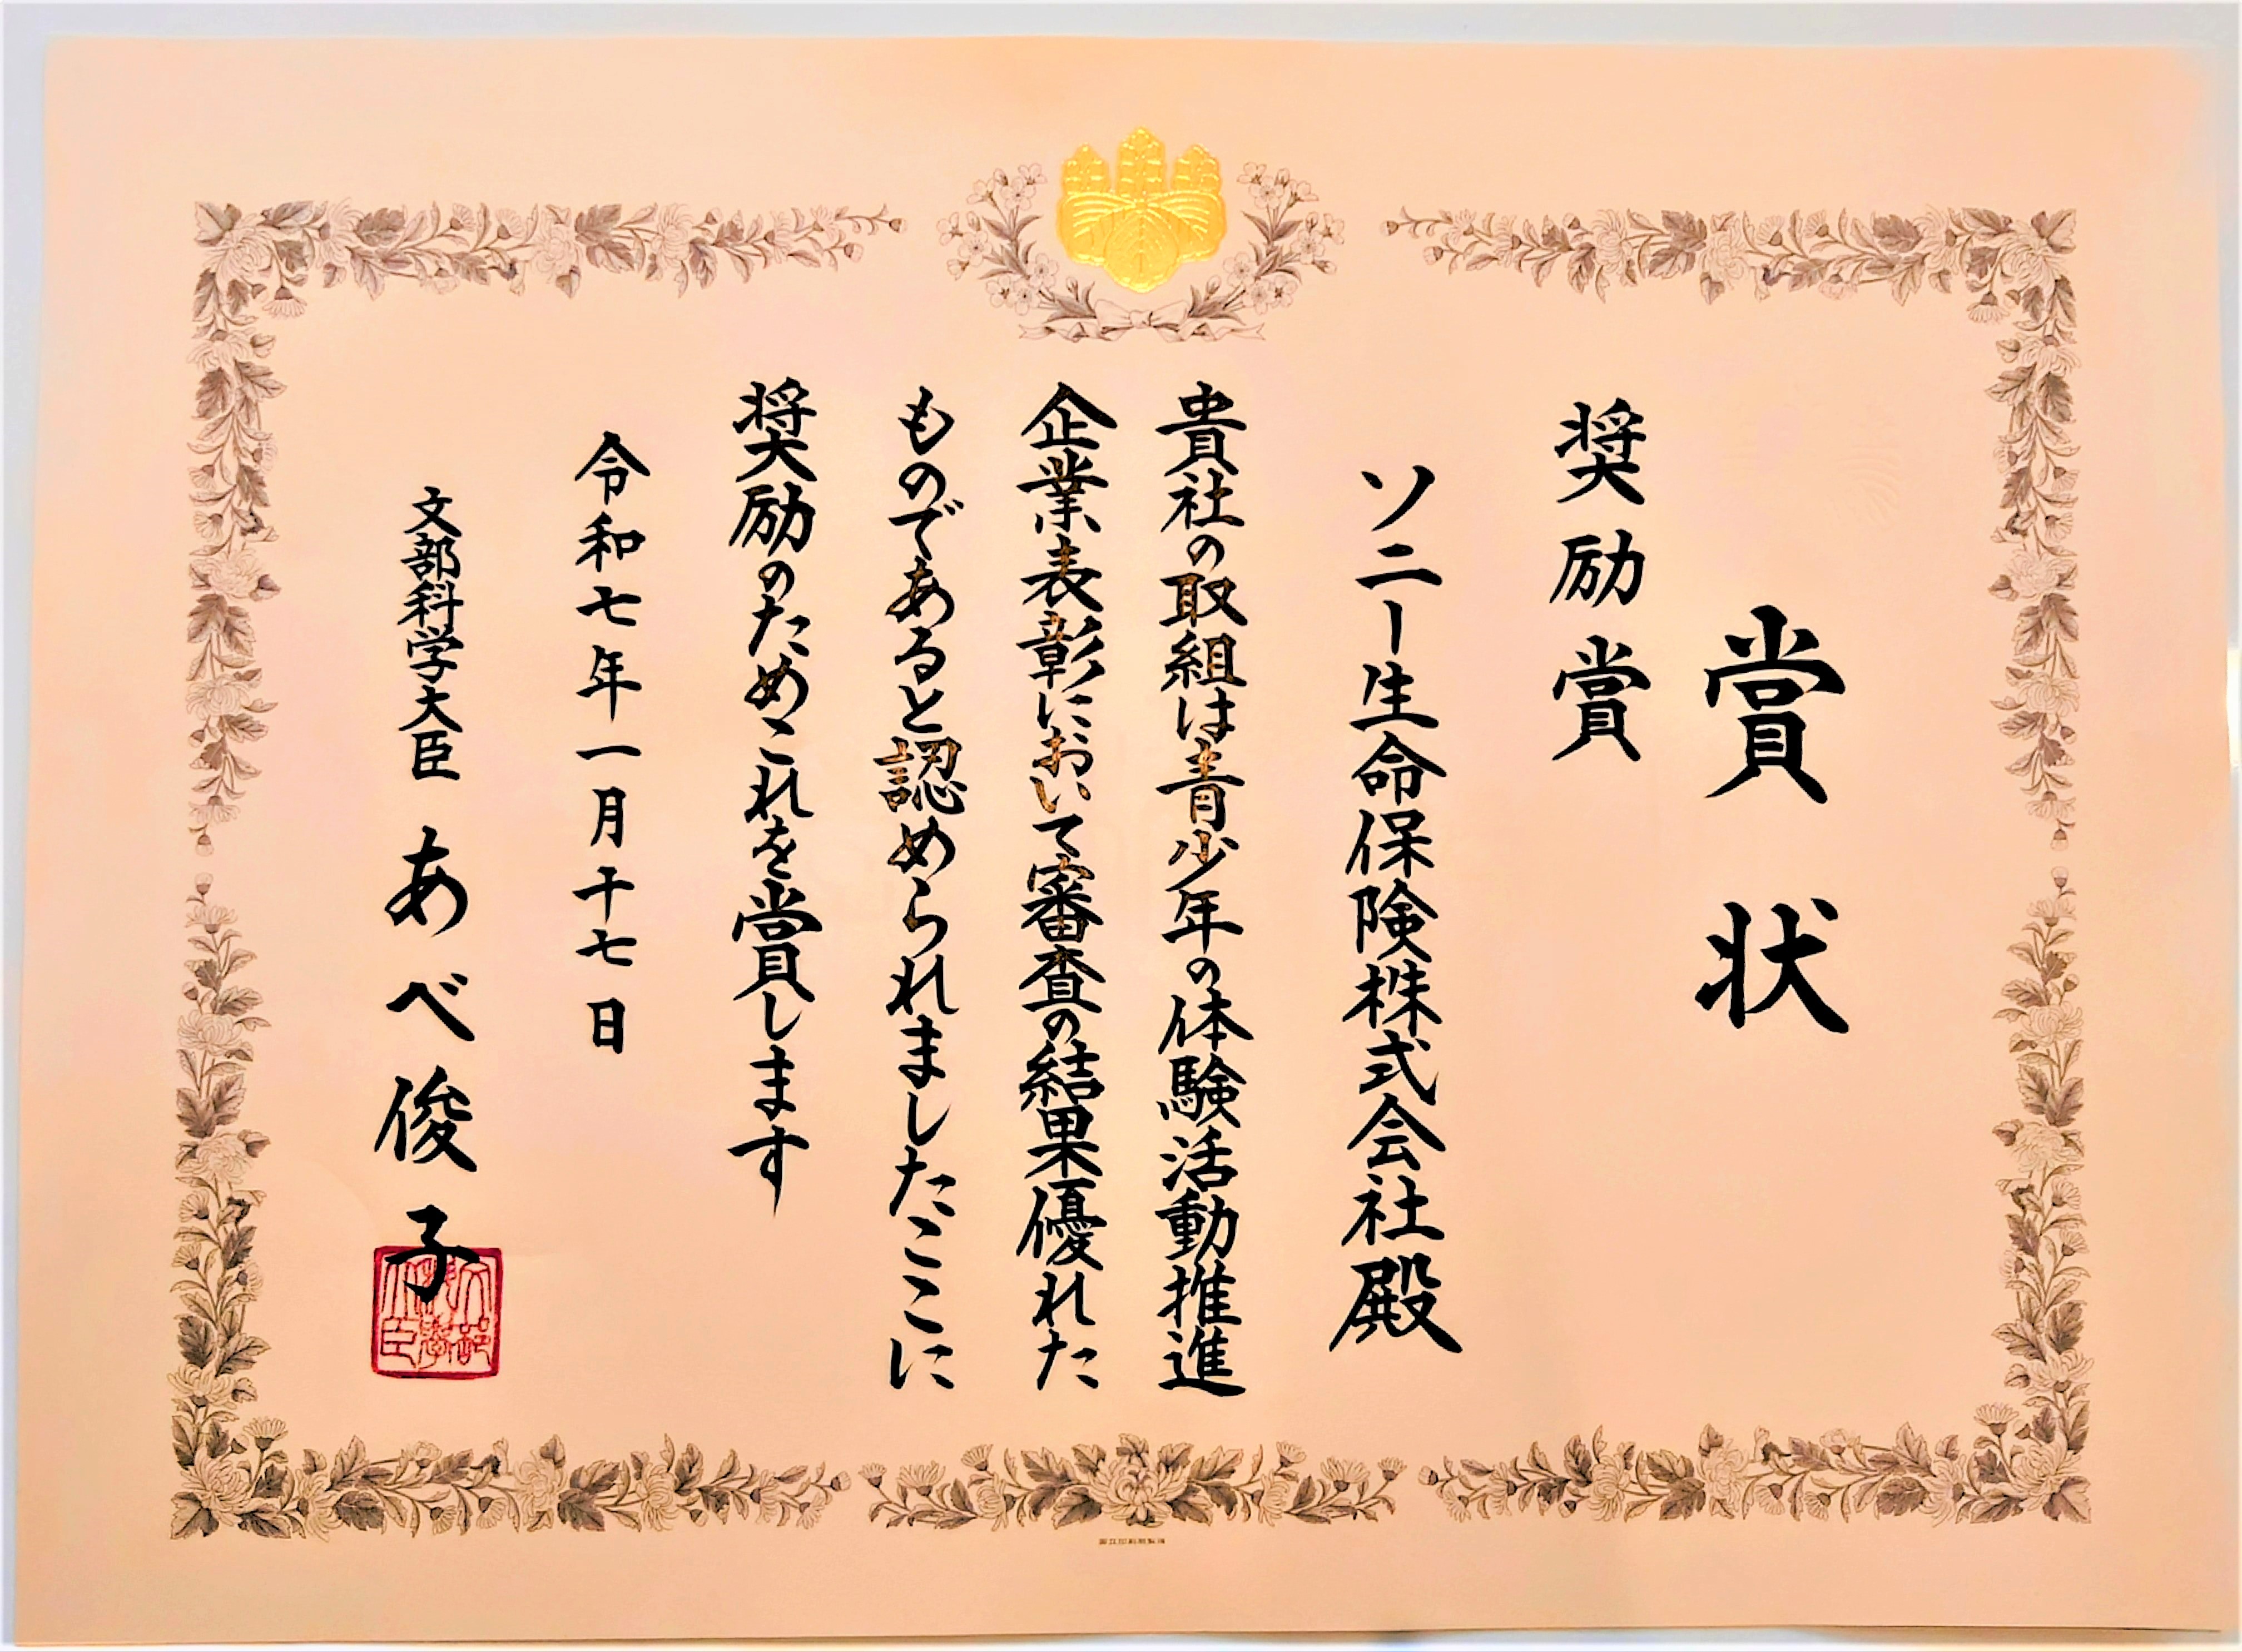 賞状
奨励賞
ソニー生命保険株式会社殿
貴社の取組は青少年の体験活動推進
企業表彰において審査の結果優れた
ものであると認められましたここに
奨励のためこれを賞します
令和七年一月十七日
文部科学大臣 あべ俊子